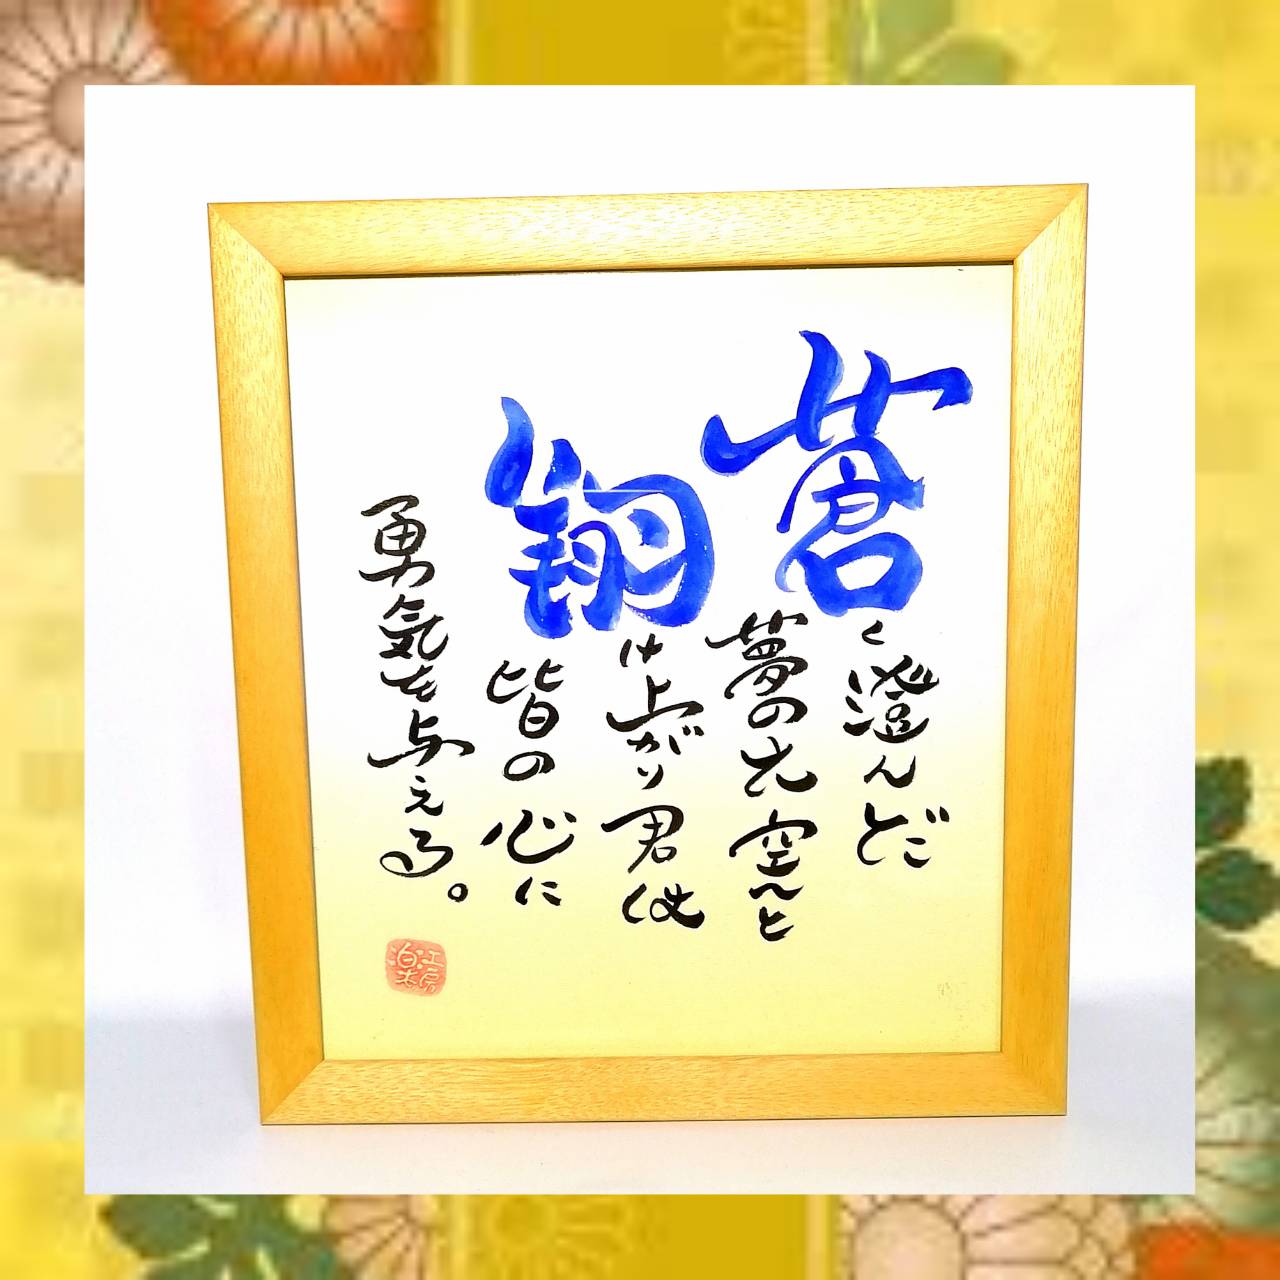 蒼く澄んだ
夢の大空へと
翔け上がり君は
皆の心に
勇気を与える。